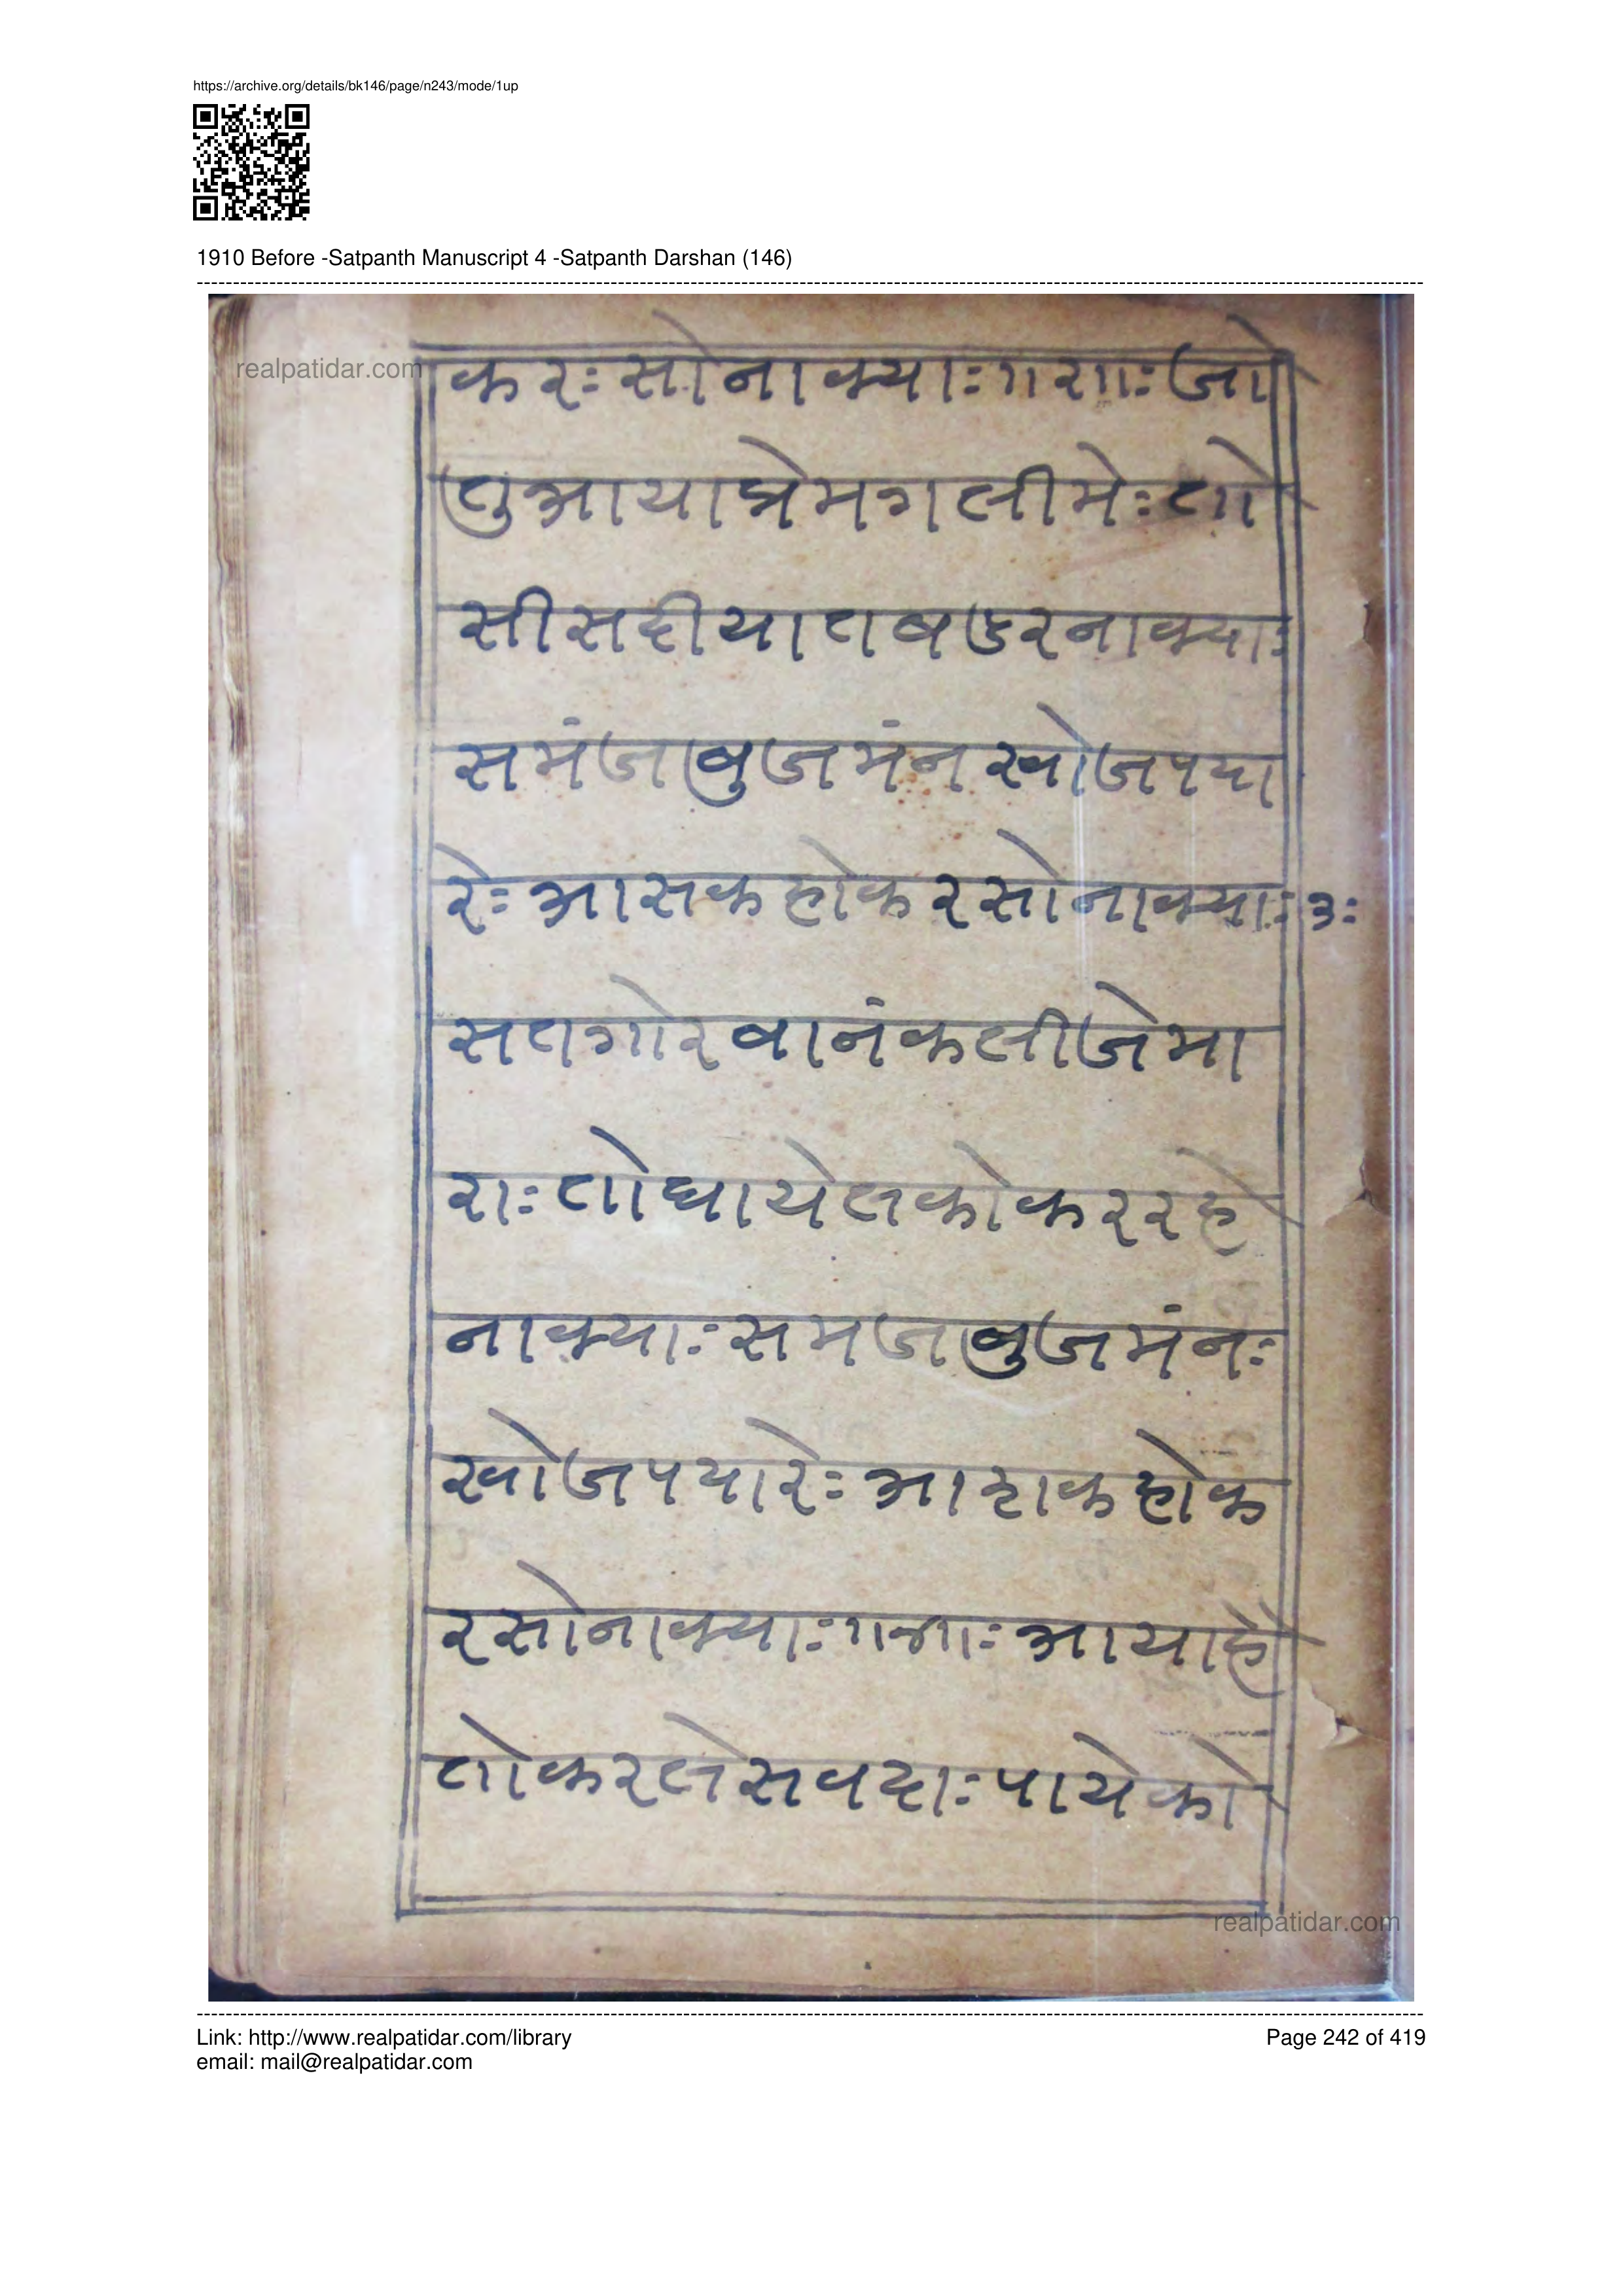 https://archive.org/details/bk146/page/n243/mode/1up
1910 Before -Satpanth Manuscript 4 -Satpanth Darshan (146)
realpatidar.com
करः सोनाक्याः ।।२।।ः जो
तुआयाप्रेमगलीमेः तो
सीसदीयातबडरनाक्याः
समंजबुजमंनखोजपया
रेः आसकहोकरसोनाक्याः ३ः
सतगोरबानंकलीजेमा
राः तोघायेलकोकररहे
नाक्याः समजबुजमंनः
खोजपयारेः आशकहोक
रसोनाक्याः ।।४।।ः आयाहे
तोकरलेसवदाः पायेको
realpatidar.com
Link: http://www.realpatidar.com/library
Page 242 of 419
email: mail@realpatidar.com